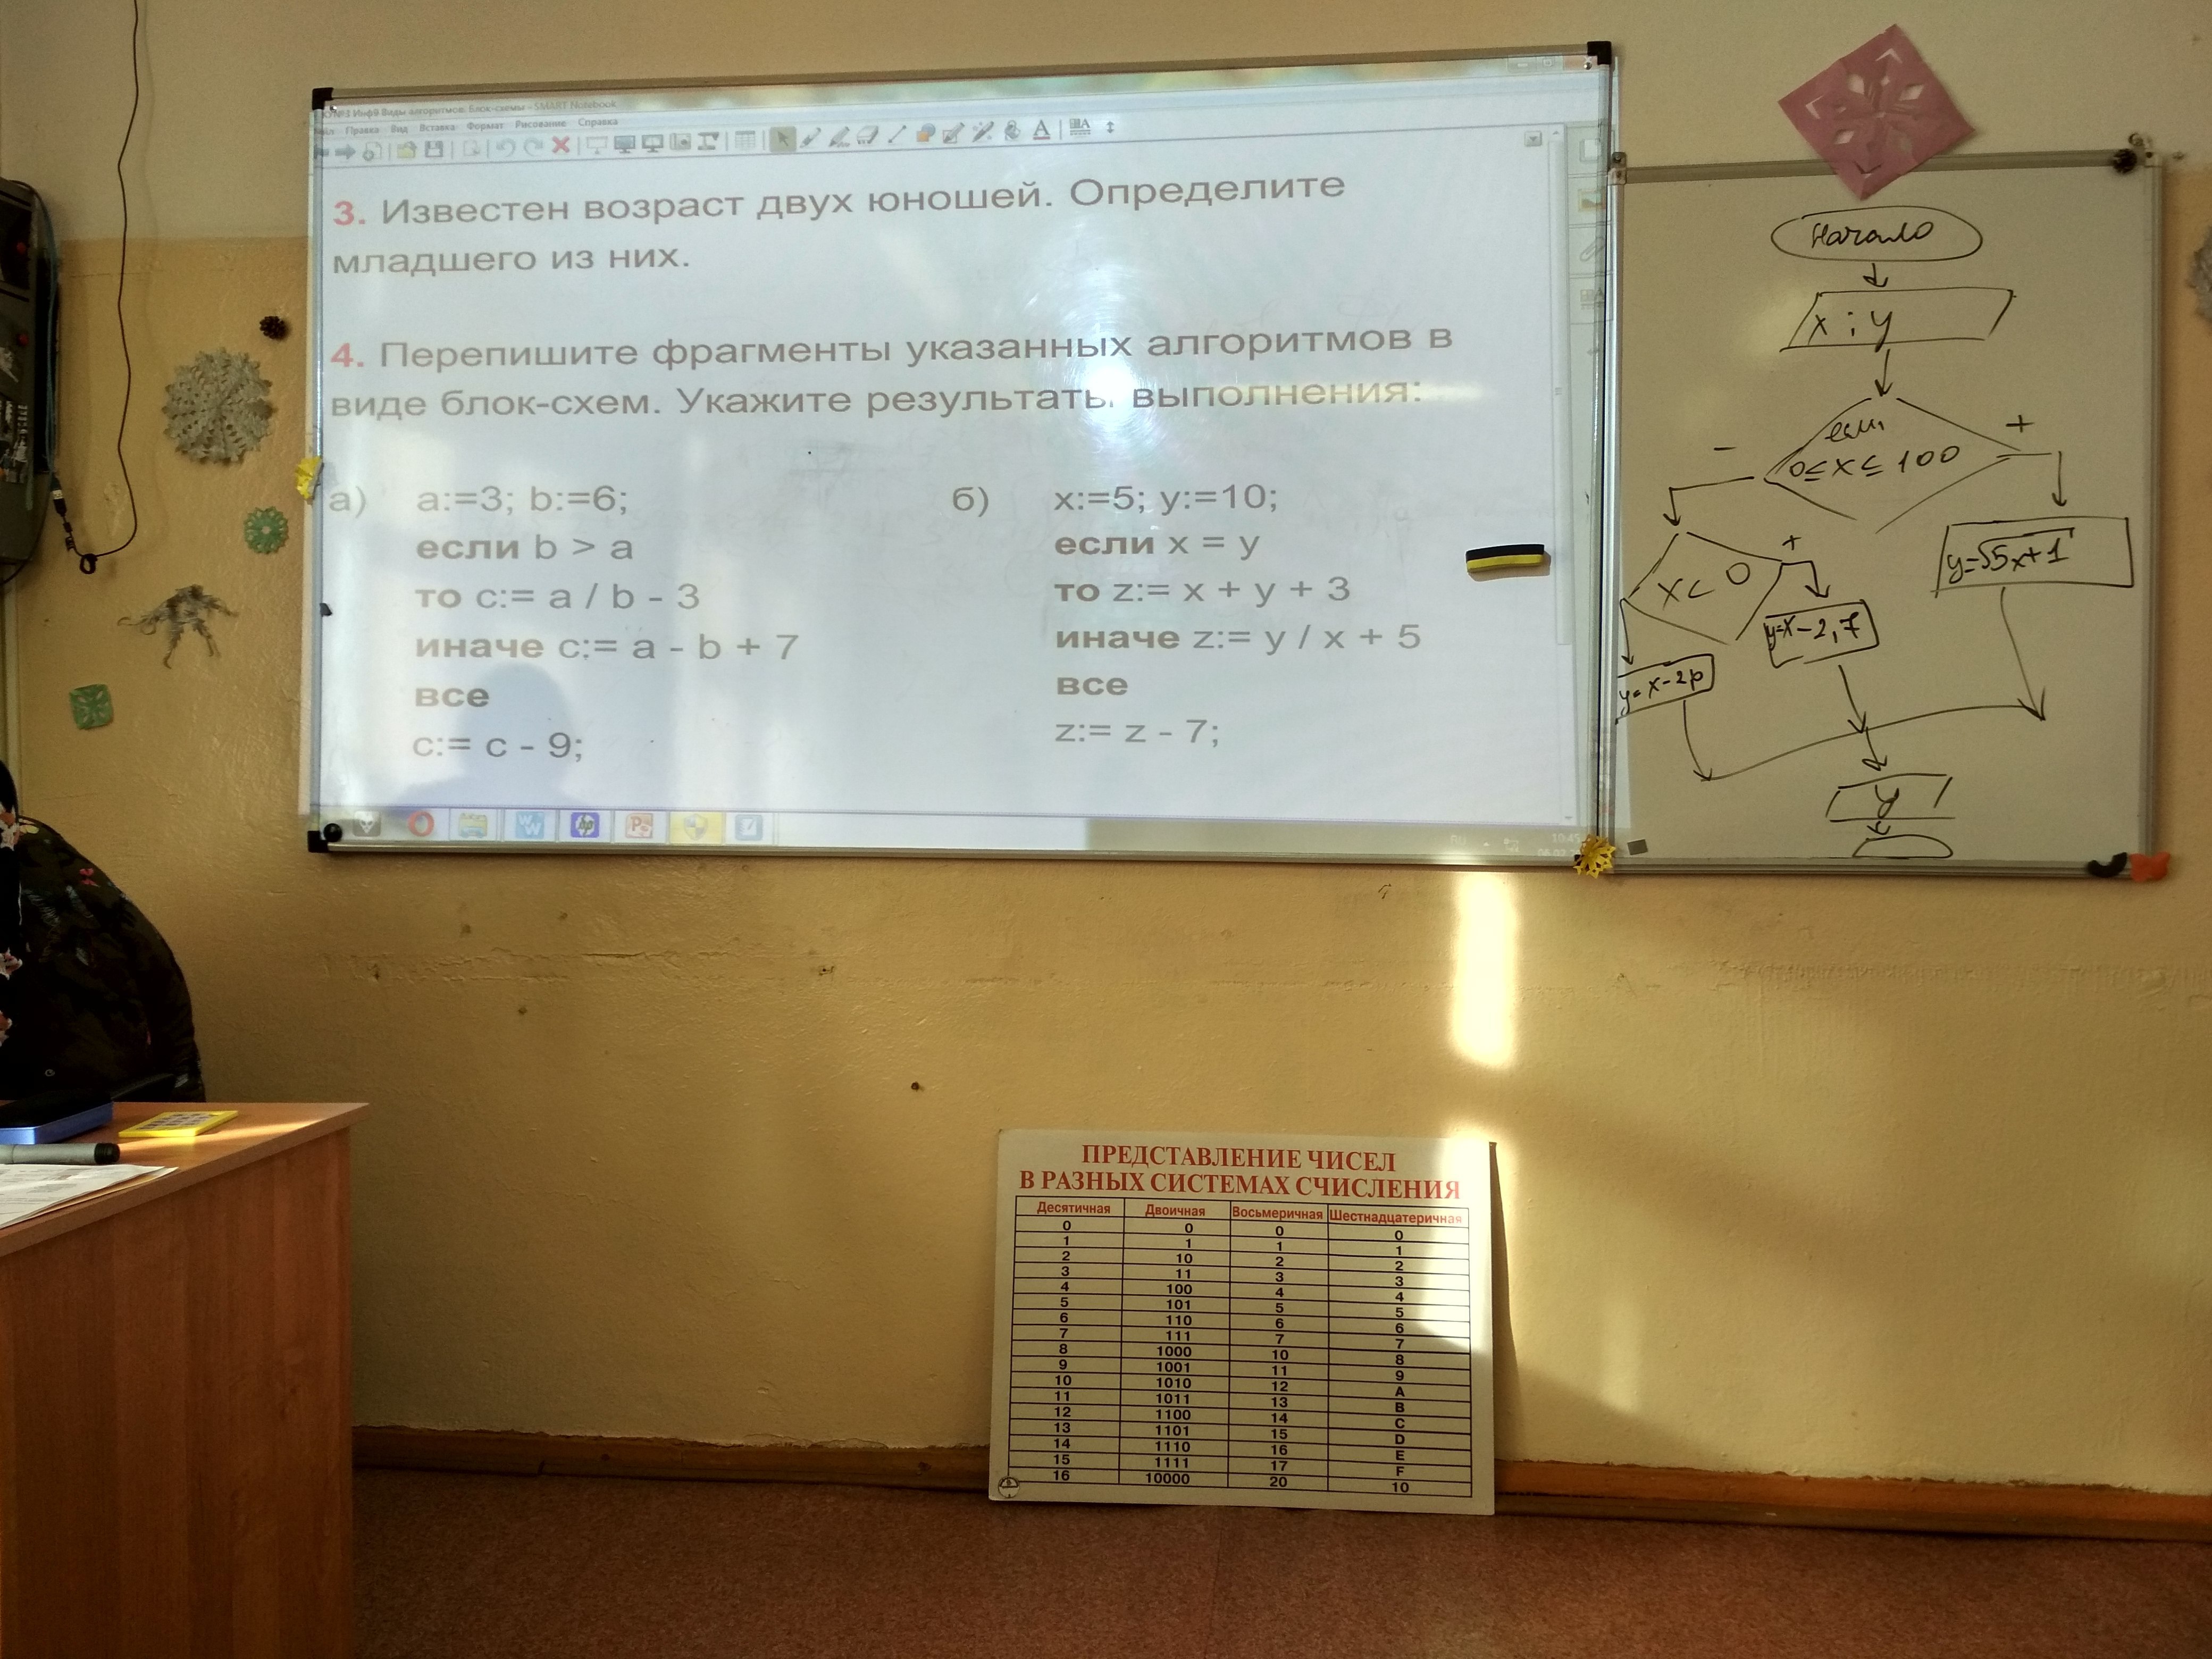 Инф9 Виды алгоритмов. Блок-схемы - SMART Notebook
Правка Вид Вставка Формат Рисование Справка
3. Известен возраст двух юношей. Определите
младшего из них.
4. Перепишите фрагменты указанных алгоритмов в
виде блок-схем. Укажите результаты выполнения:
а) a:=3; b:=6;
если b > a
то c:= a / b - 3
иначе c:= a - b + 7
все
c:= c - 9;
б) x:=5; y:=10;
если x = y
то z:= x + y + 3
иначе z:= y / x + 5
все
z:= z - 7;
RU
10:45
Начало
x ; y
если
0≤x≤100
- +
x<0
+
y=√5x+1
y=x-2,7
y=x-2p
y
ПРЕДСТАВЛЕНИЕ ЧИСЕЛ
В РАЗНЫХ СИСТЕМАХ СЧИСЛЕНИЯ
Десятичная Двоичная Восьмеричная Шестнадцатеричная
0 0 0 0
1 1 1 1
2 10 2 2
3 11 3 3
4 100 4 4
5 101 5 5
6 110 6 6
7 111 7 7
8 1000 10 8
9 1001 11 9
10 1010 12 A
11 1011 13 B
12 1100 14 C
13 1101 15 D
14 1110 16 E
15 1111 17 F
16 10000 20 10